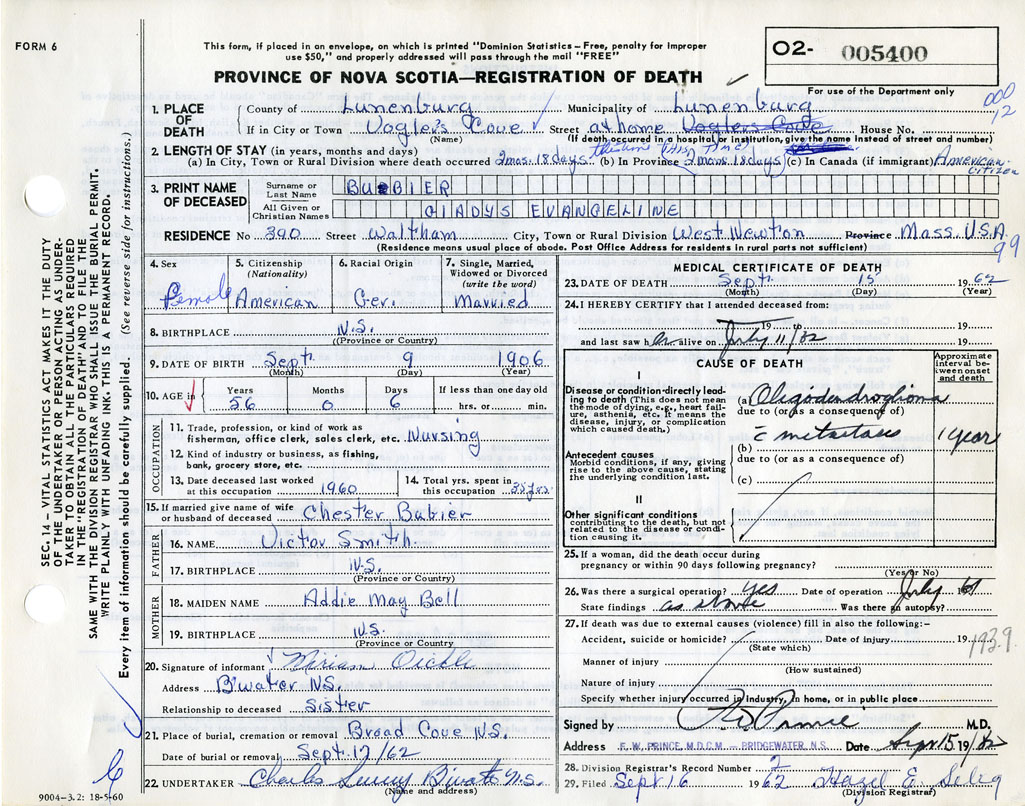 FORM 6
This form, if placed in an envelope, on which is printed "Dominion Statistics – Free, penalty for improper
use $50," and properly addressed will pass through the mail "FREE"
PROVINCE OF NOVA SCOTIA—REGISTRATION OF DEATH
02- 005400
For use of the Department only
000
12
1. PLACE OF DEATH
County of Lunenburg Municipality of Lunenburg
If in City or Town Vogler's Cove Street at home Voglers Cove House No.
(Name) (If death occurred in a hospital or institution, give the name instead of street and number)
2. LENGTH OF STAY (in years, months and days) this time
(a) In City, Town or Rural Division where death occurred 2 mos. 18 days (b) In Province 2 mos. 18 days (c) In Canada (if immigrant) American citizen
3. PRINT NAME OF DECEASED
Surname or Last Name BUBBIER
All Given or Christian Names GLADYS EVANGELINE
RESIDENCE No 390 Street Waltham City, Town or Rural Division West Newton Province Mass. U.S.A.
(Residence means usual place of abode. Post Office Address for residents in rural parts not sufficient)
99
4. Sex Female
5. Citizenship (Nationality) American
6. Racial Origin Ger.
7. Single, Married, Widowed or Divorced (write the word) Married
8. BIRTHPLACE N.S.
(Province or Country)
9. DATE OF BIRTH Sept. 9 1906
(Month) (Day) (Year)
10. AGE in Years 56 Months 0 Days 6 If less than one day old
hrs. or min.
OCCUPATION
11. Trade, profession, or kind of work as
fisherman, office clerk, sales clerk, etc. Nursing
12. Kind of industry or business, as fishing,
bank, grocery store, etc.
13. Date deceased last worked at this occupation 1960
14. Total yrs. spent in this occupation 35 yrs.
15. If married give name of wife
or husband of deceased Chester Bubier
FATHER
16. NAME Victor Smith
17. BIRTHPLACE N.S.
(Province or Country)
MOTHER
18. MAIDEN NAME Addie May Bell
19. BIRTHPLACE N.S.
(Province or Country)
20. Signature of informant Miriam Oickle
Address B'water N.S.
Relationship to deceased Sister
21. Place of burial, cremation or removal Broad Cove N.S.
Date of burial or removal Sept. 17/62
22. UNDERTAKER Charles B'water N.S.
(Name and address)
MEDICAL CERTIFICATE OF DEATH
23. DATE OF DEATH Sept. 15 1962
(Month) (Day) (Year)
24. I HEREBY CERTIFY that I attended deceased from:
19 to 19
and last saw her alive on July 11/62 19
CAUSE OF DEATH
Approximate interval between onset and death
I
Disease or condition directly leading to death (This does not mean the mode of dying, e.g., heart failure, asthenia, etc. It means the disease, injury, or complication which caused death.)
(a) Oligodendroglioma
due to (or as a consequence of)
c metastases 1 year
Antecedent causes
Morbid conditions, if any, giving rise to the above cause, stating the underlying condition last.
(b)
due to (or as a consequence of)
(c)
II
Other significant conditions
contributing to the death, but not related to the disease or condition causing it.
25. If a woman, did the death occur during
pregnancy or within 90 days following pregnancy?
(Yes or No)
26. Was there a surgical operation? yes Date of operation July 1961
State findings as above Was there an autopsy?
27. If death was due to external causes (violence) fill in also the following:-
Accident, suicide or homicide? Date of injury 19
(State which)
1939
Manner of injury
(How sustained)
Nature of injury
Specify whether injury occurred in Industry, in home, or in public place
Signed by F W Prince M.D.
Address F. W. PRINCE, M.D.C.M. — BRIDGEWATER, N.S. Date Sept 15 19/62
28. Division Registrar's Record Number 2
29. Filed Sept 16 1962 Hazel E.
(Division Registrar)
SEC. 14 – VITAL STATISTICS ACT MAKES IT THE DUTY
OF THE UNDERTAKER OR PERSON ACTING AS UNDER-
TAKER TO OBTAIN ALL THE PARTICULARS REQUIRED
IN THE "REGISTRATION OF DEATH" AND TO FILE THE
SAME WITH THE DIVISION REGISTRAR WHO SHALL ISSUE THE BURIAL PERMIT.
WRITE PLAINLY WITH UNFADING INK. THIS IS A PERMANENT RECORD.
Every item of information should be carefully supplied. (See reverse side for instructions.)
9004–3.2: 18-5-60